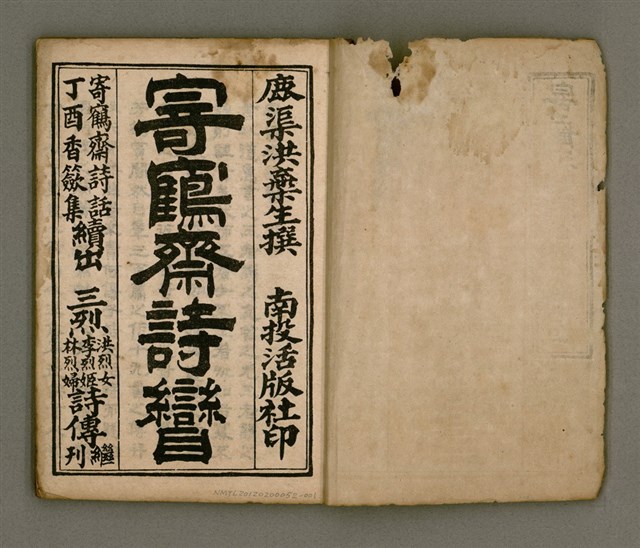 鹿渠洪藥生撰　南投活版社印
寄鶴齋詩矕
寄鶴齋詩話續出　三烈洪烈女李烈姬林烈婦詩傳繼刊
丁酉香籨集
NMTL20120200052-001